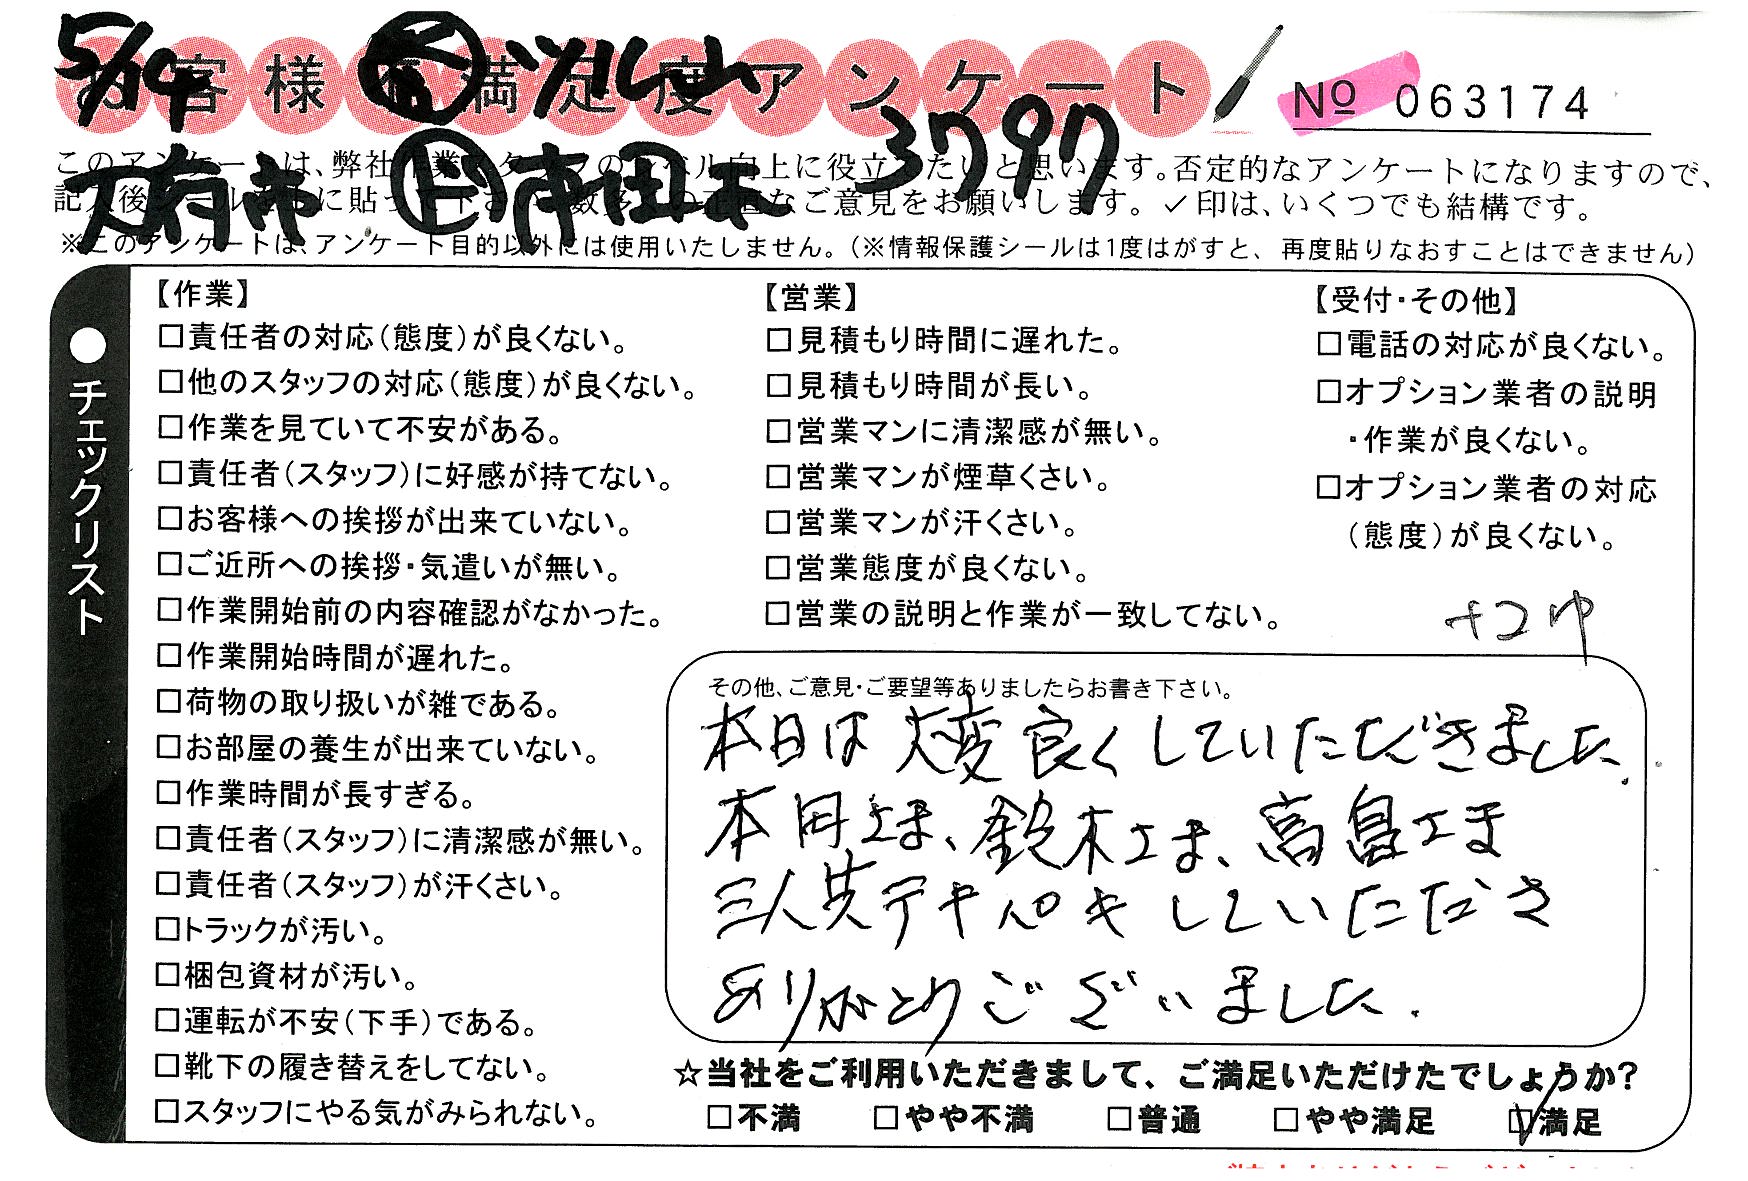 5/14
お客様不満足度アンケート
№ 063174
3797
このアンケートは、弊社作業スタッフのレベル向上に役立てたいと思います。否定的なアンケートになりますので、
記入後シールを上に貼って下さい。数多くの正直なご意見をお願いします。✓印は、いくつでも結構です。
※このアンケートは、アンケート目的以外には使用いたしません。(※情報保護シールは1度はがすと、再度貼りなおすことはできません)
●チェックリスト
【作業】
□責任者の対応(態度)が良くない。
□他のスタッフの対応(態度)が良くない。
□作業を見ていて不安がある。
□責任者(スタッフ)に好感が持てない。
□お客様への挨拶が出来ていない。
□ご近所への挨拶・気遣いが無い。
□作業開始前の内容確認がなかった。
□作業開始時間が遅れた。
□荷物の取り扱いが雑である。
□お部屋の養生が出来ていない。
□作業時間が長すぎる。
□責任者(スタッフ)に清潔感が無い。
□責任者(スタッフ)が汗くさい。
□トラックが汚い。
□梱包資材が汚い。
□運転が不安(下手)である。
□靴下の履き替えをしてない。
□スタッフにやる気がみられない。
【営業】
□見積もり時間に遅れた。
□見積もり時間が長い。
□営業マンに清潔感が無い。
□営業マンが煙草くさい。
□営業マンが汗くさい。
□営業態度が良くない。
□営業の説明と作業が一致してない。
【受付・その他】
□電話の対応が良くない。
□オプション業者の説明
・作業が良くない。
□オプション業者の対応
(態度)が良くない。
その他、ご意見・ご要望等ありましたらお書き下さい。
本日は大変良くしていただきました。
本田さま、鈴木さま、高島さま
三人共テキパキしていただき
ありがとうございました。
☆当社をご利用いただきまして、ご満足いただけたでしょうか?
□不満 □やや不満 □普通 □やや満足 ☑満足